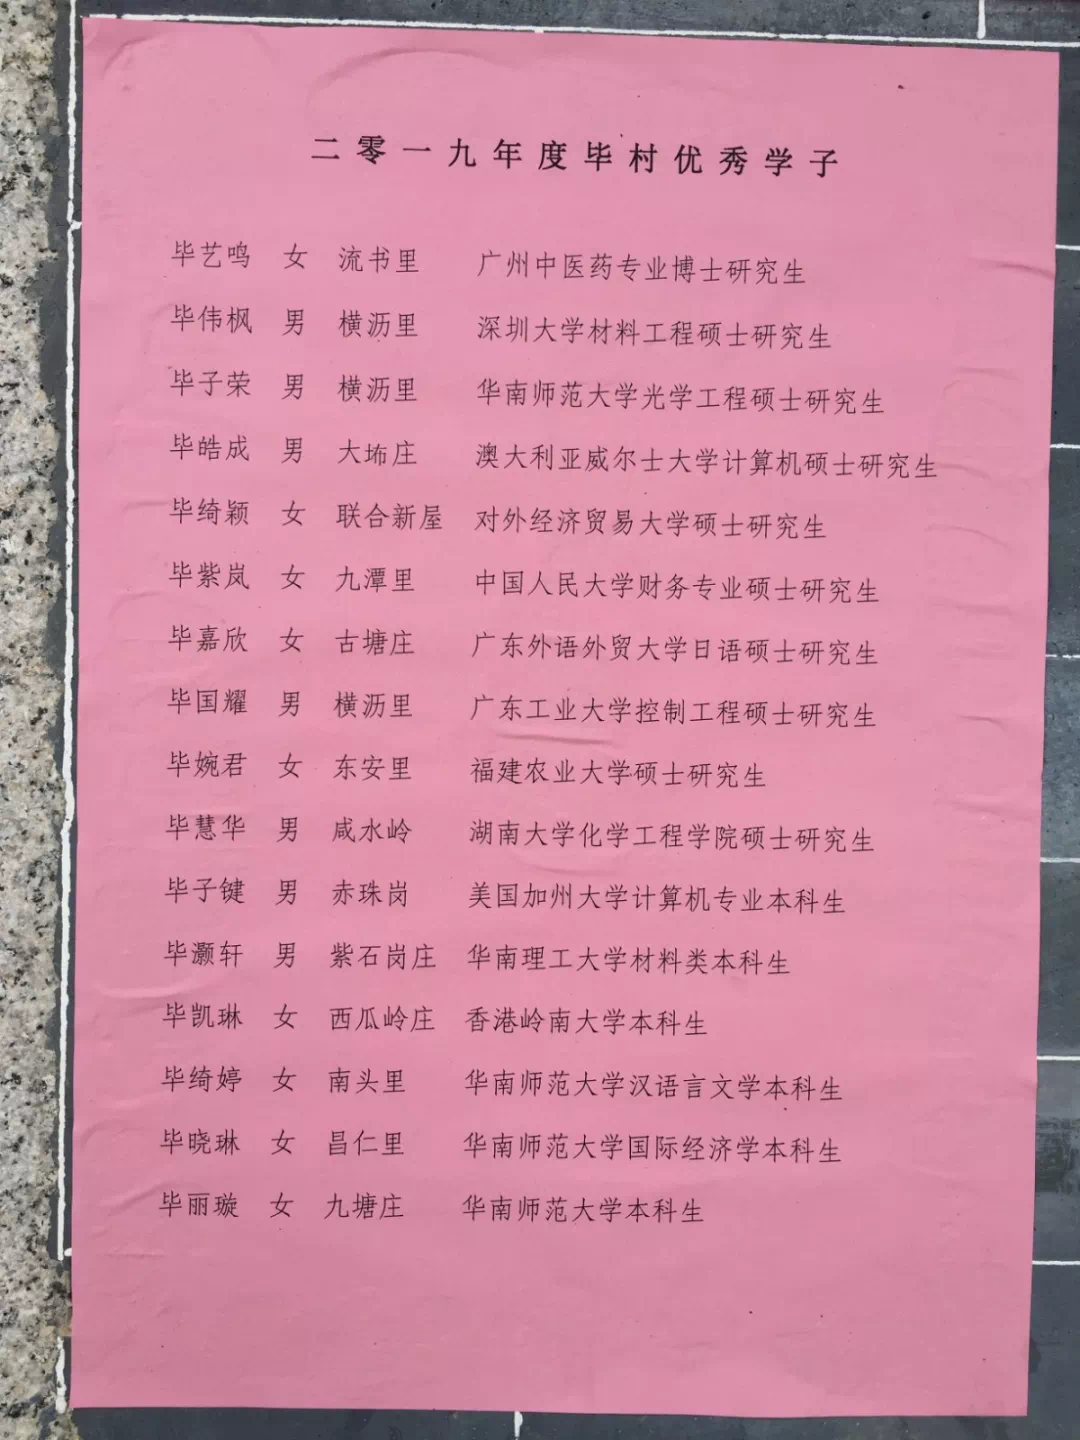 二零一九年度毕村优秀学子
毕艺鸣 女 流书里 广州中医药专业博士研究生
毕伟枫 男 横沥里 深圳大学材料工程硕士研究生
毕子荣 男 横沥里 华南师范大学光学工程硕士研究生
毕皓成 男 大㘵庄 澳大利亚威尔士大学计算机硕士研究生
毕绮颖 女 联合新屋 对外经济贸易大学硕士研究生
毕紫岚 女 九潭里 中国人民大学财务专业硕士研究生
毕嘉欣 女 古塘庄 广东外语外贸大学日语硕士研究生
毕国耀 男 横沥里 广东工业大学控制工程硕士研究生
毕婉君 女 东安里 福建农业大学硕士研究生
毕慧华 男 咸水岭 湖南大学化学工程学院硕士研究生
毕子键 男 赤珠岗 美国加州大学计算机专业本科生
毕灏轩 男 紫石岗庄 华南理工大学材料类本科生
毕凯琳 女 西瓜岭庄 香港岭南大学本科生
毕绮婷 女 南头里 华南师范大学汉语言文学本科生
毕晓琳 女 昌仁里 华南师范大学国际经济学本科生
毕丽璇 女 九塘庄 华南师范大学本科生